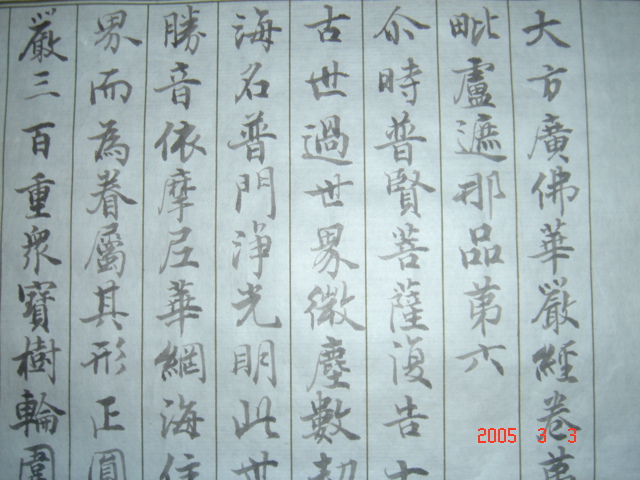 大方廣佛華嚴經卷
毗盧遮那品第六
尒時普賢菩薩復告
古世過世界微塵數劫
海名普門淨光明此世
勝音依摩尼華網海住
界而為眷屬其形正圓
嚴三百重眾寶樹輪圍
2005 3 3